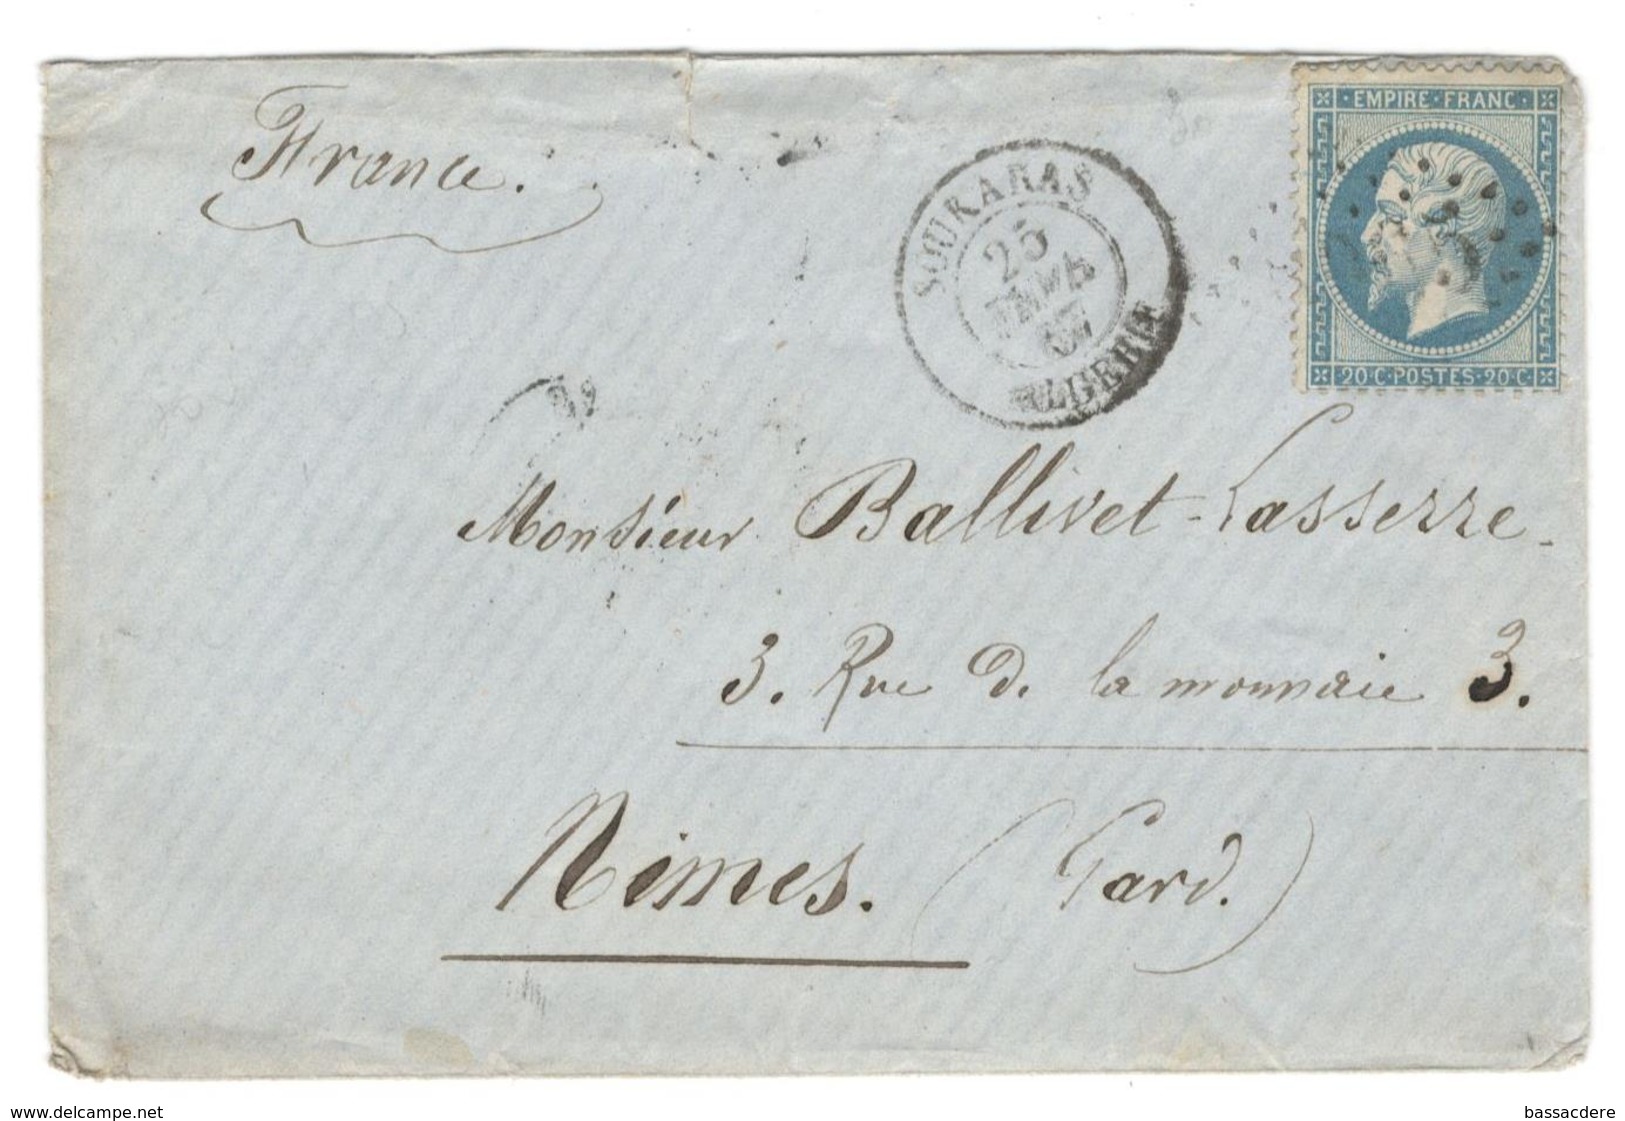 France.
EMPIRE·FRANC·
SOUKARAS
25
67
ALGERIE
20·C·POSTES·20·C·
Monsieur Ballivet-Lasserre.
3. Rue de la monnaie 3.
Nimes. (Gard.)
www.delcampe.net
bassacdere